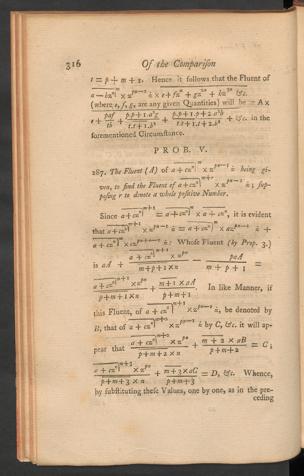 316 Of the Comparison
t = p + m + 2. Hence it follows that the Fluent of
a − bzⁿ|ᵐ × z^{pn−1} ż × e + fzⁿ + gz²ⁿ + hz³ⁿ &c.
(where e, f, g, are any given Quantities) will be = A ×
e + paf/tb + p.p+1.a²g/t.t+1.b² + p.p+1.p+2.a³h/t.t+1.t+2.b³ + &c. in the
forementioned Circumstance.
PROB. V.
287. The Fluent (A) of a + czⁿ|ᵐ × z^{pn−1} ż being gi-
ven, to find the Fluent of a + czⁿ|^{m+r} × z^{pn−1} ż; sup-
posing r to denote a whole positive Number.
Since a + czⁿ|^{m+1} = a + czⁿ|ᵐ × a + czⁿ, it is evident
that a + czⁿ|^{m+1} × z^{pn−1} ż = a + czⁿ|ᵐ × az^{pn−1} ż +
a + czⁿ|ᵐ × cz^{pn+n−1} ż: Whose Fluent (by Prop. 3.)
is aA + a + czⁿ|^{m+1} × z^{pn}/m+p+1 × n − paA/m + p + 1 =
a + czⁿ|^{m+1} × z^{pn}/p+m+1 × n + m+1 × aA/p+m+1. In like Manner, if
this Fluent, of a + czⁿ|^{m+1} × z^{pn−1} ż, be denoted by
B, that of a + czⁿ|^{m+2} × z^{pn−1} ż by C, &c. it will ap-
pear that a + czⁿ|^{m+2} × z^{pn}/p+m+2 × n + m + 2 × aB/p+m+2 = C;
a + czⁿ|^{m+3} × z^{pn}/p+m+3 × n + m+3 × aC/p+m+3 = D, &c. Whence,
by substituting these Values, one by one, as in the pre-
ceding